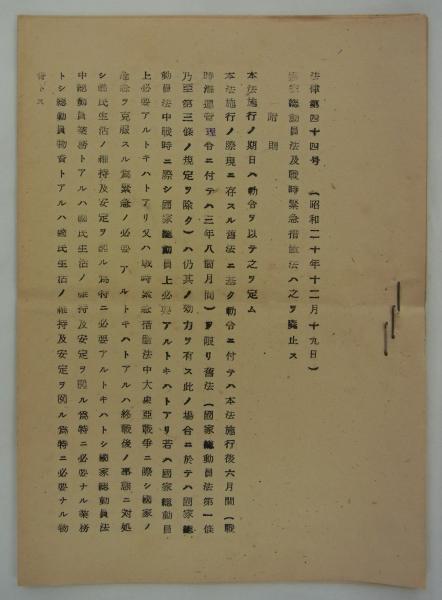 法律第四十四号 (昭和二十年十二月十九日)
國家総動員法及戦時緊急措置法ハ之ヲ廃止ス
附則
本法施行ノ期日ハ勅令ヲ以テ之ヲ定ム
本法施行ノ際現ニ存スル舊法ニ基ク勅令ニ付テハ本法施行後六月間(戰
時海運管理令ニ付テハ三年八箇月間)ヲ限リ舊法(國家総動員法第一條
乃至第三條ノ規定ヲ除ク)ハ仍其ノ効力ヲ有ス此ノ場合ニ於テハ國家総
動員法中戦時ニ際シ國家総動員上必要アルトキハトアリ若ハ國家総動員
上必要アルトキハトアリ又ハ戦時緊急措置法中大東亜戦争ニ際シ國家ノ
危急ヲ克服スル爲緊急ノ必要アルトキハトアルハ終戦後ノ事態ニ対処
シ國民生活ノ維持及安定ヲ図ル爲特ニ必要アルトキハトシ國家総動員法
中総動員業務トアルハ國民生活ノ維持及安定ヲ図ル爲特ニ必要ナル業務
トシ総動員物資トアルハ國民生活ノ維持及安定ヲ図ル爲特ニ必要ナル物
資トス